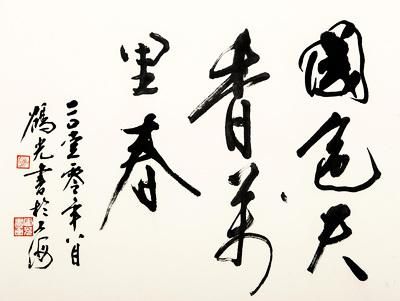 國色天
香萬
里春
二〇壹零年八月
光書於上海